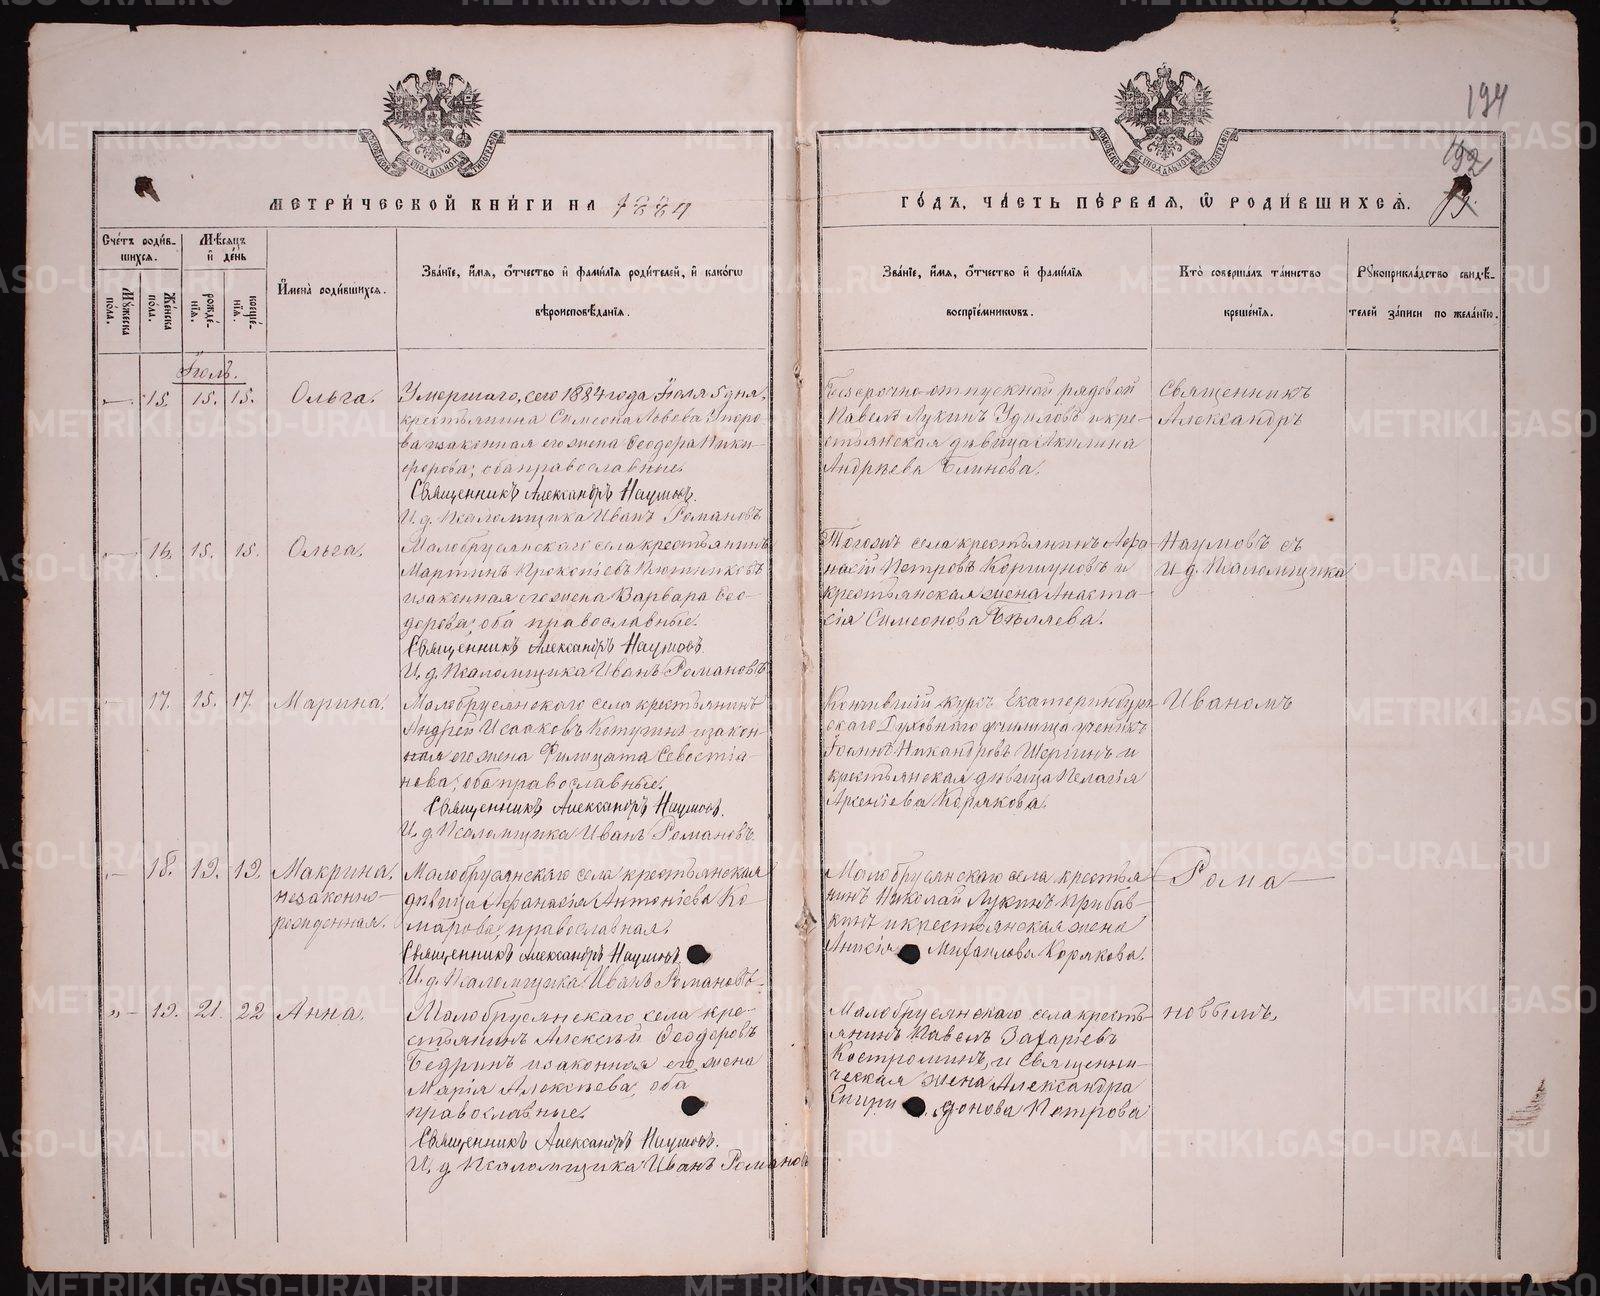 METRIKI.GASO-URAL.RU
194
192
МЕТРИ́ЧЕСКОЙ КНИ́ГИ НА 1884
ГО́ДЪ, ЧА́СТЬ ПЕ́РВАЯ, Ѡ РОДИ́ВШИХСѦ.
Сче́тъ роди́в-
шихся.
Мѣсяцъ
и̂ де́нь
Мꙋжеска по́ла.
Же́нска по́ла.
рожде́-
нїя.
креще́-
нїя.
И҆мена̀ роди́вшихся.
Зва́нїе, и҆́мя, ѻ҆́тчество и҆ фами́лїя роди́телей, и҆ како́гѡ
вѣроисповѣ́данїя.
Зва́нїе, и҆́мя, ѻ҆́тчество и҆ фами́лїя
воспрїе́мникѡвъ.
Кто̀ соверша́лъ та́инство
креще́нїя.
Рꙋкоприкла́дство свидѣ́-
телей за́писи по жела́нїю.
Іюль.
15. 15. 15. Ольга.
Умершаго, сего 1884 года Іюля 5 дня,
крестьянина Симеона Львова
ва и законная его жена Ѳеодора Ники-
форова; оба православные.
Священникъ Александръ Наумовъ.
И. д. Псаломщика Иванъ Романовъ
Безсрочно-отпускной рядовой
Павелъ Лукинъ Удиловъ и кре-
стьянская дѣвица Акилина
Андреева Блинова.
Священникъ
Александръ
16. 15. 15. Ольга.
Малобрусянскаго села крестьянинъ
Мартинъ Прокопіевъ
и законная его жена Варвара Ѳео-
дорова; оба православные.
Священникъ Александръ Наумовъ
И. д. Псаломщика Иванъ Романовъ
Тогожъ села крестьянинъ Аѳа-
насій Петровъ Коршуновъ и
крестьянская жена Анаста-
сія Симеонова Бѣляева.
Наумовъ съ
И. д. Псаломщика
17. 15. 17. Марина.
Малобрусянскаго села крестьянинъ
Андрей Исааковъ Кетугинъ и закон-
ная его жена Филицата Севостіа-
нова; оба православные.
Священникъ Александръ Наумовъ
И. д. Псаломщика Иванъ Романовъ.
Кончившій курсъ Екатеринбург-
скаго Духовнаго училища ученикъ
Іоаннъ Никандровъ Шергинъ и
крестьянская дѣвица Пелагія
Арсеніева Корякова.
Иваномъ
18. 19. 19. Макрина.
незаконно-
рожденная.
Малобрусянскаго села крестьянская
дѣвица Афанасія Антоніева Ко-
марова; православная.
Священникъ Александръ Наумовъ
И. д. Псаломщика Иванъ Романовъ.
Малобрусянскаго села крестья-
нинъ Николай Лукинъ Прибав-
кинъ и крестьянская жена
Анисія Михаилова Корякова.
Рома
19. 21. 22 Анна.
Малобрусянскаго села кре-
стьянинъ Алексѣй Ѳеодоровъ
Бедринъ и законная его жена
Марія Алексѣева, оба
православные.
Священникъ Александръ Наумовъ.
И. д. Псаломщика Иванъ Романовъ
Малобрусянскаго села кресть-
янинъ Павелъ Захаріевъ
Костроминъ, и священни-
ческая жена Александра
Спиридонова Петрова
новымъ.